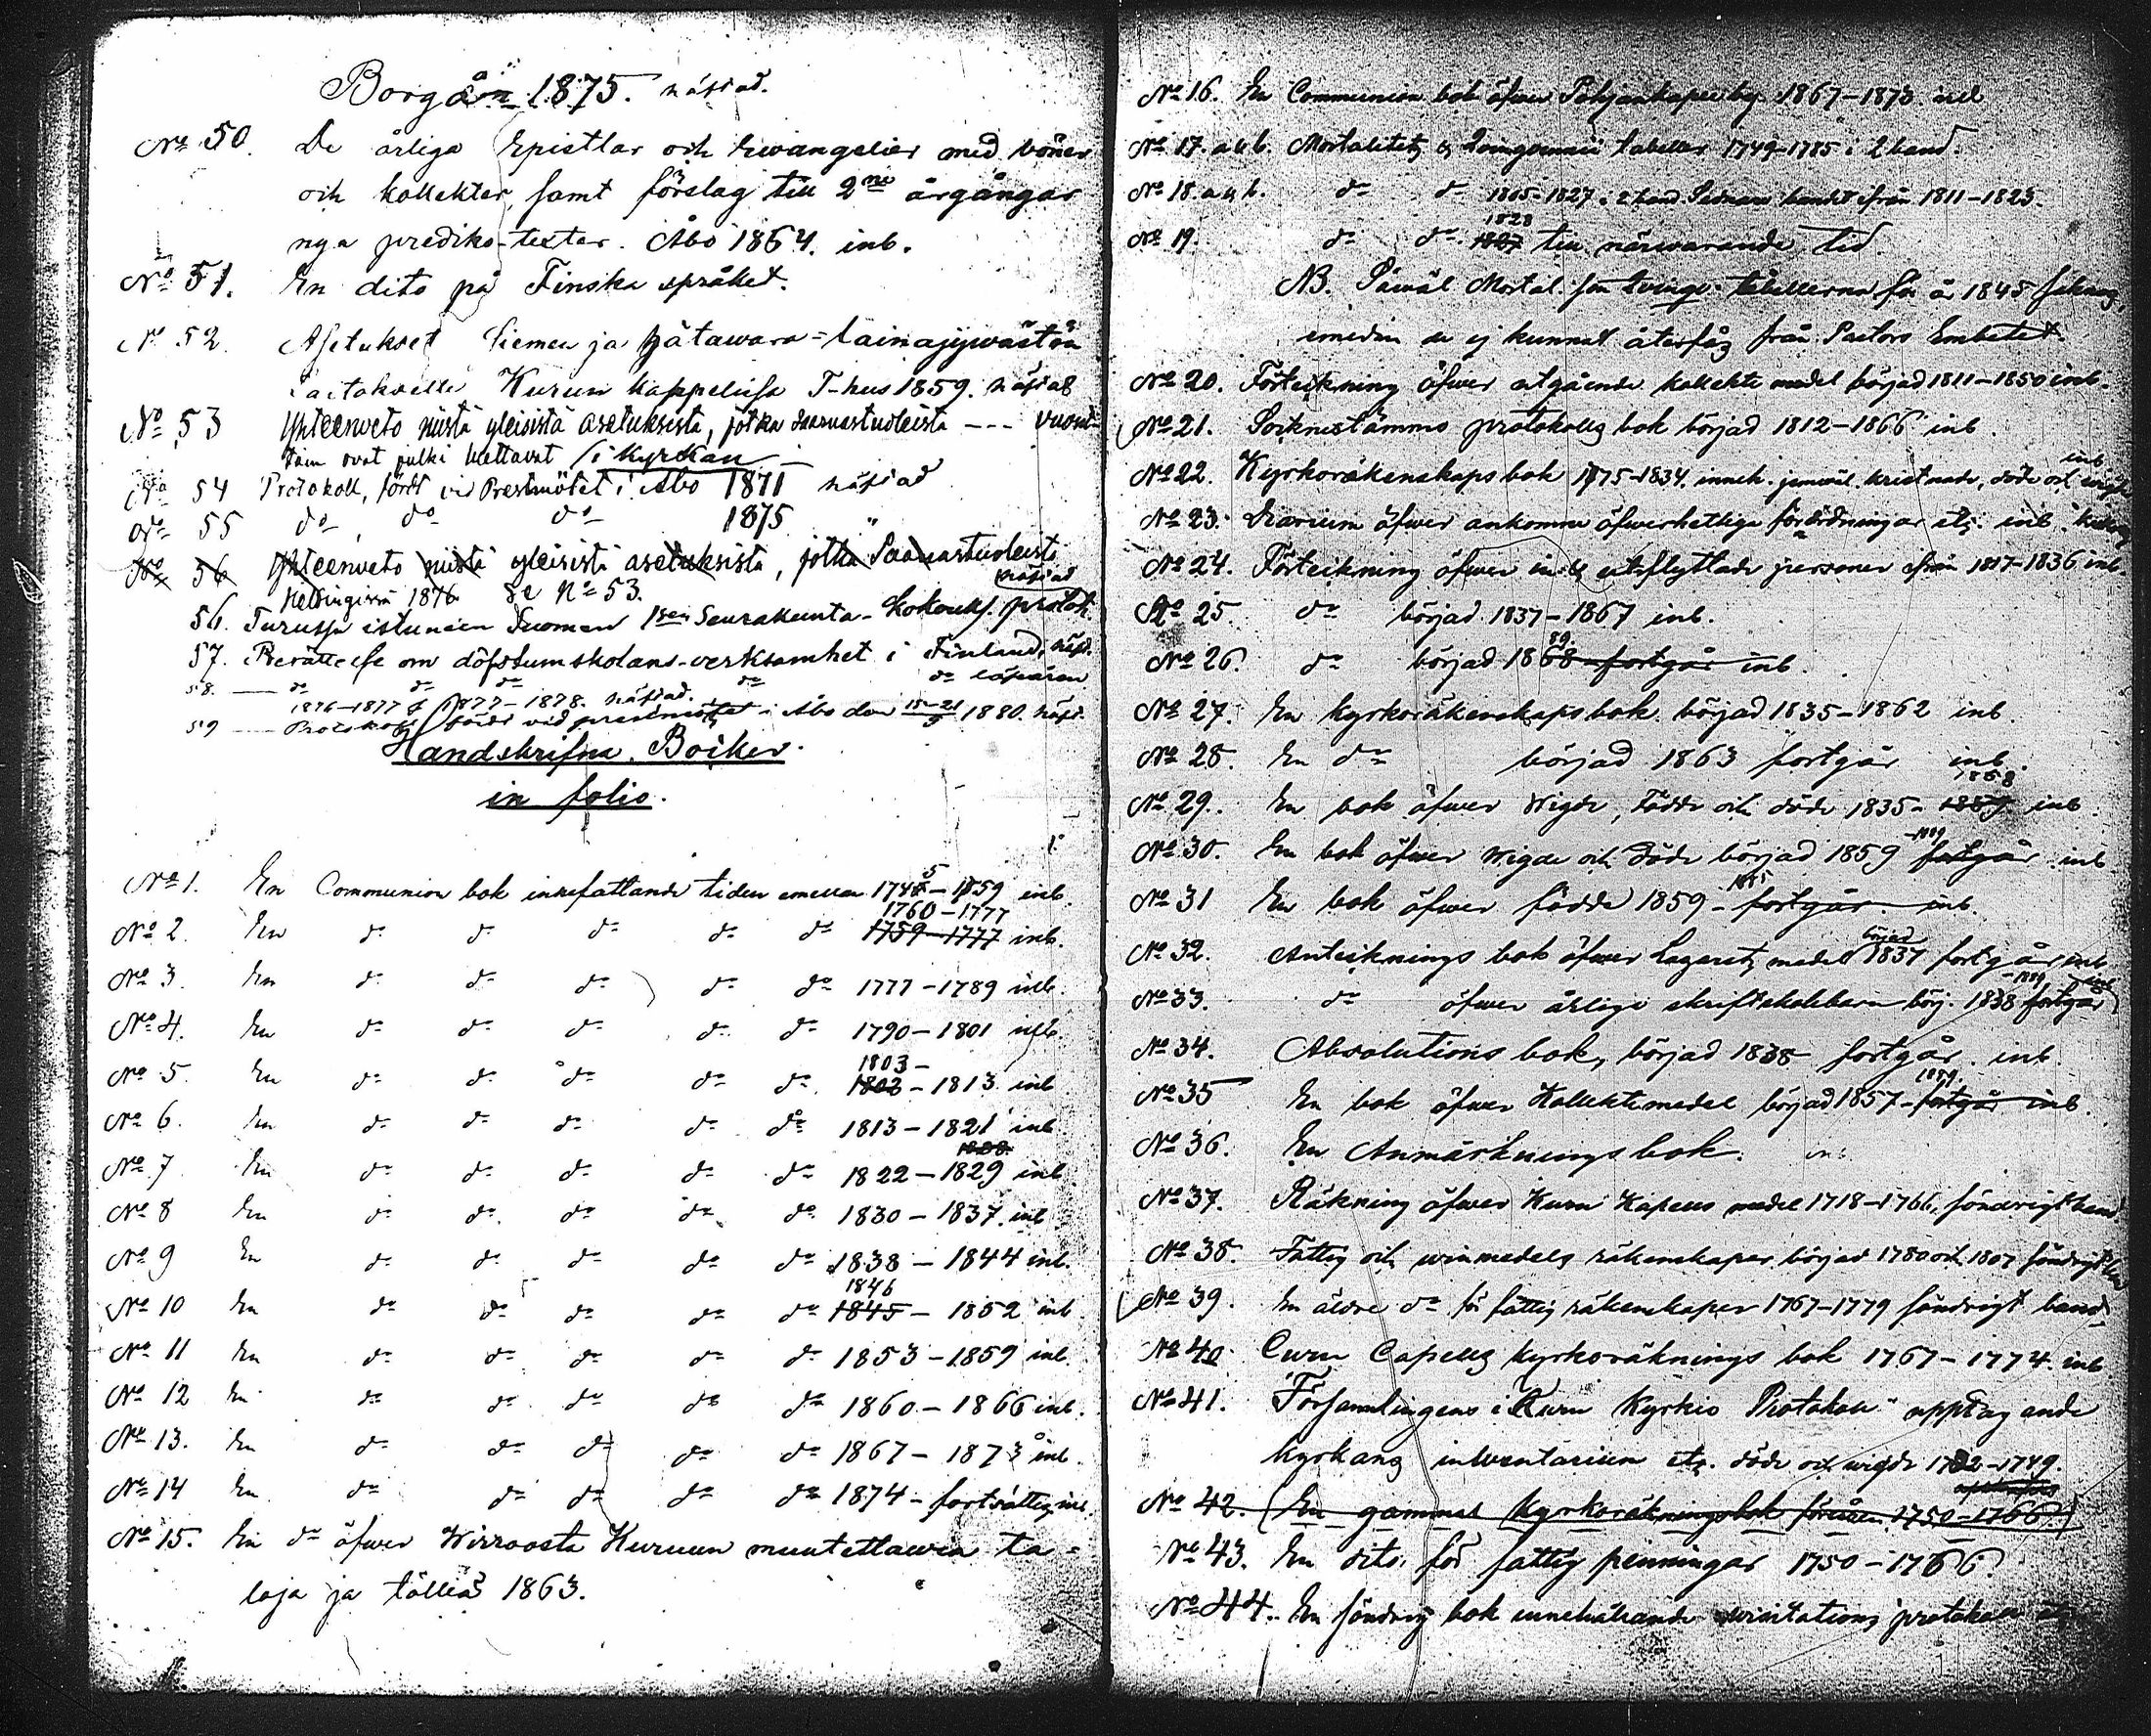 Borgå 1875. häftad.
No 50. De årliga Epistlar och Ewangelier med böner
och kollekter, samt förslag till 2ne årgångar
nya prediko-texter. Åbo 1864. inb.
No 51. En dito på Finska språket.
No 52. Asetukset Siemen ja hätawara-lainajywästön
Kurun kappelissa T-hus 1859. häftad
No 53 Yhteenveto niistä yleisistä asetuksista, jotka saarnastuoleista --- vuosit-
tain ovat julki luettavat /i Kyrkan
No 54 Protokoll, fördt vid Prestmötet i Åbo 1871 häftad
No 55 do do do 1875
No 56 Yhteenveto niistä yleisistä asetuksista, jotka Saarnastuoleista
Helsingissä 1876 Se No 53. häftad
56. Turussa istuneen Suomen 1sen Seurakunta-kokouks. protok.
57. Berättelse om döfstumskolans verksamhet i Finland, häft.
58. — do do do do do läsåren
1876-1877 & 1877-1878. häftad.
59 — Protokoll fördt vid prestmötet i Åbo den 15-21/9 1880. häft.
Handskrifna Böcker.
in folio.
No 1. En Communion bok innefattande tiden emellan 1745 - 1759 inb.
1760-1777
No 2. En do do do do do 1759-1777 inb.
No 3. En do do do do do 1777-1789 inb.
No 4. En do do do do do 1790-1801 inb.
1803-
No 5. En do do do do do 1802 - 1813 inb
No 6. En do do do do do 1813-1821 inb
No 7 En do do do do do 1822-1829 inb
No 8 En do do do do do 1830-1837. inb
No 9 En do do do do do 1838-1844 inb.
1846
No 10 En do do do do do 1845 - 1852 inb
No 11 En do do do do do 1853-1859 inb.
No 12 En do do do do do 1860-1866 inb.
No 13. En do do do do do 1867-1873 inb.
No 14 En do do do do do 1874 - fortsättes inb.
No 15. En do öfwer Wirroosta Kuruun muutettawia ta-
loja ja tölliä 1863.
No 16. En Communion bok öfwer Pohjankapee by 1867-1873. inb
No 17. a & b. Mortalitets & tabeller 1749-1785 i 2 band.
No 18. a & b. do do 1805-1827 i 2 band Sednare bandet ifrån 1811-1823.
1828
No 19. do do 1827 till närwarande tid.
NB. Såwäl Mortal. som tabellerna för år 1845 saknas,
emedan de ej kunnat återfås från Pastors Embetet.
No 20. Förteckning öfwer utgående kollekt medel börjad 1811-1850 inb.
No 21. Socknestämmo protokolls bok börjad 1812-1866 inb.
No 22. Kyrkoräkenskaps bok 1775-1834. inneh. jemwäl kristnade, döde och wigde inb
No 23. Diarium öfwer ankomne öfwerhetliga förordningar etc. inb.
No 24. Förteckning öfwer in- & utflyttade personer ifrån 1817-1836 inb.
No 25 do börjad 1837-1867 inb.
89.
No 26. do börjad 1868 - fortgår inb.
No 27. En kyrkoräkenskapsbok börjad 1835-1862 inb.
No 28. En do börjad 1863 fortgår inb.
1858
No 29. En bok öfwer Wigde, födde och döde 1835- 1859 inb.
-1889
No 30. En bok öfwer Wigde och döde börjad 1859 fortgår inb
No 31 En bok öfwer födde 1859 - fortgår inb.
börjad
No 32. Antecknings bok öfwer Lazarets medel 1837 fortgår inb
No 33. do öfwer årliga skriftskolebarn börj. 1838 fortgår
No 34. Absolutions bok, börjad 1838 fortgår. inb
1889.
No 35 En bok öfwer Kollektmedel börjad 1857 - fortgår inb.
No 36. En Anmärkningsbok. inb
No 37. Räkning öfwer Kuru Kapells medel 1718-1766, söndrigt band
No 38. Fattig och winmedels räkenskaper börjad 1780 och 1807 söndrigt
No 39. En äldre do för fattig räkenskaper 1767-1779 söndrigt band
No 40. Curu Capells kyrkoräknings bok 1767-1774 inb
No 41. Församlingens i Kuru Kyrkio Protokoll upptagande
kyrkans inventarium etc. döde och wigde 1732-1749.
No 42. (En gammal kyrkoräkningsbok för åren 1750-1766.)
No 43. En dito för fattig penningar 1750-1766.
No 44. En söndrig bok innehållande wisitations protokoll etc